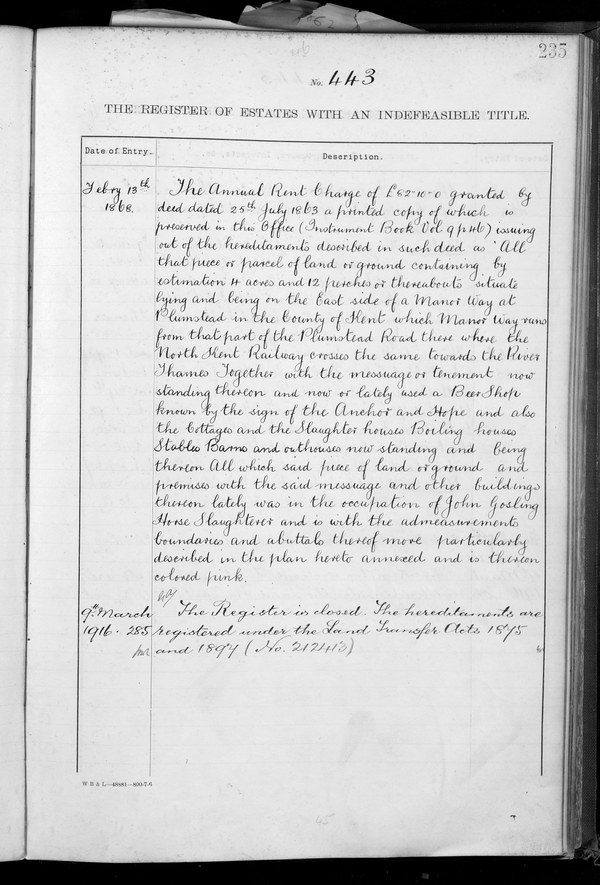 235
No. 443
THE REGISTER OF ESTATES WITH AN INDEFEASIBLE TITLE.
Date of Entry. Description.
Febry 13th The Annual Rent Charge of £82-10-0 granted by
1868. deed dated 25th July 1863 a printed copy of which is
preserved in this Office (Instrument Book Vol 9 p 46) issuing
out of the hereditaments described in such deed as "All
that piece or parcel of land or ground containing by
estimation 4 acres and 12 perches or thereabouts situate
lying and being on the East side of a Manor Way at
Plumstead in the County of Kent which Manor Way runs
from that part of the Plumstead Road there where the
North Kent Railway crosses the same towards the River
Thames Together with the messuage or tenement now
standing thereon and now or lately used a Beer Shop
known by the sign of the Anchor and Hope and also
the Cottages and the Slaughter houses Boiling houses
Stables Barns and outhouses now standing and being
thereon All which said piece of land or ground and
premises with the said messuage and other buildings
thereon lately was in the occupation of John Gosling
Horse Slaughterer and is with the admeasurements
boundaries and abuttals thereof more particularly
described in the plan hereto annexed and is thereon
colored pink.
9th March The Register is closed. The hereditaments are
1916 - 285 registered under the Land Transfer Acts 1875
and 1897 (No. 212413)
W B & L—48881—600-7-5